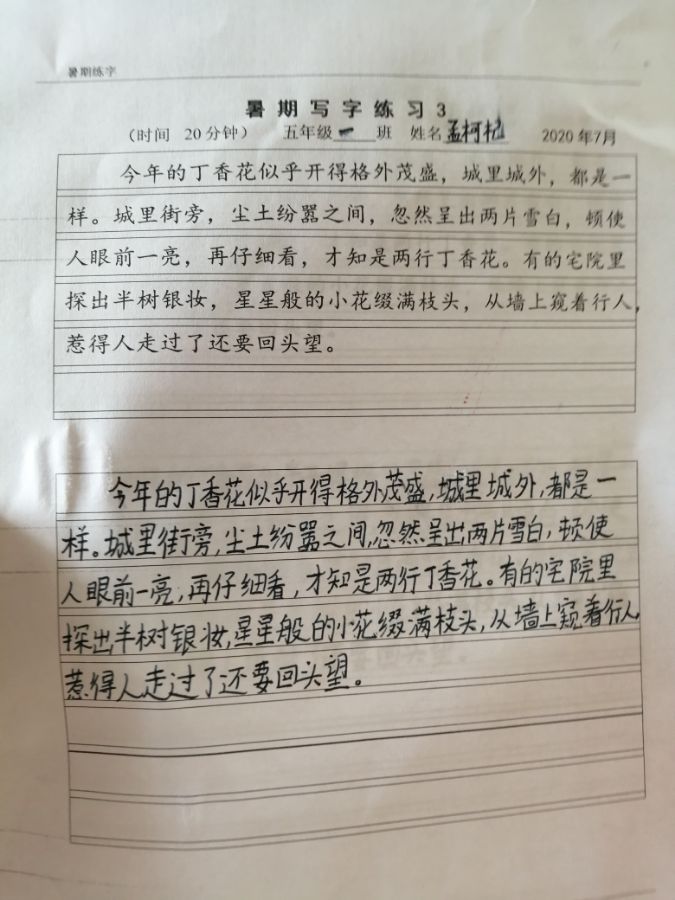 暑期练字
暑期写字练习3
（时间 20分钟） 五年级一班 姓名孟柯杞 2020年7月
今年的丁香花似乎开得格外茂盛，城里城外，都是一
样。城里街旁，尘土纷嚣之间，忽然呈出两片雪白，顿使
人眼前一亮，再仔细看，才知是两行丁香花。有的宅院里
探出半树银妆，星星般的小花缀满枝头，从墙上窥着行人，
惹得人走过了还要回头望。
今年的丁香花似乎开得格外茂盛，城里城外，都是一
样。城里街旁，尘土纷嚣之间，忽然呈出两片雪白，顿使
人眼前一亮，再仔细看，才知是两行丁香花。有的宅院里
探出半树银妆，星星般的小花缀满枝头，从墙上窥着行人
惹得人走过了还要回头望。